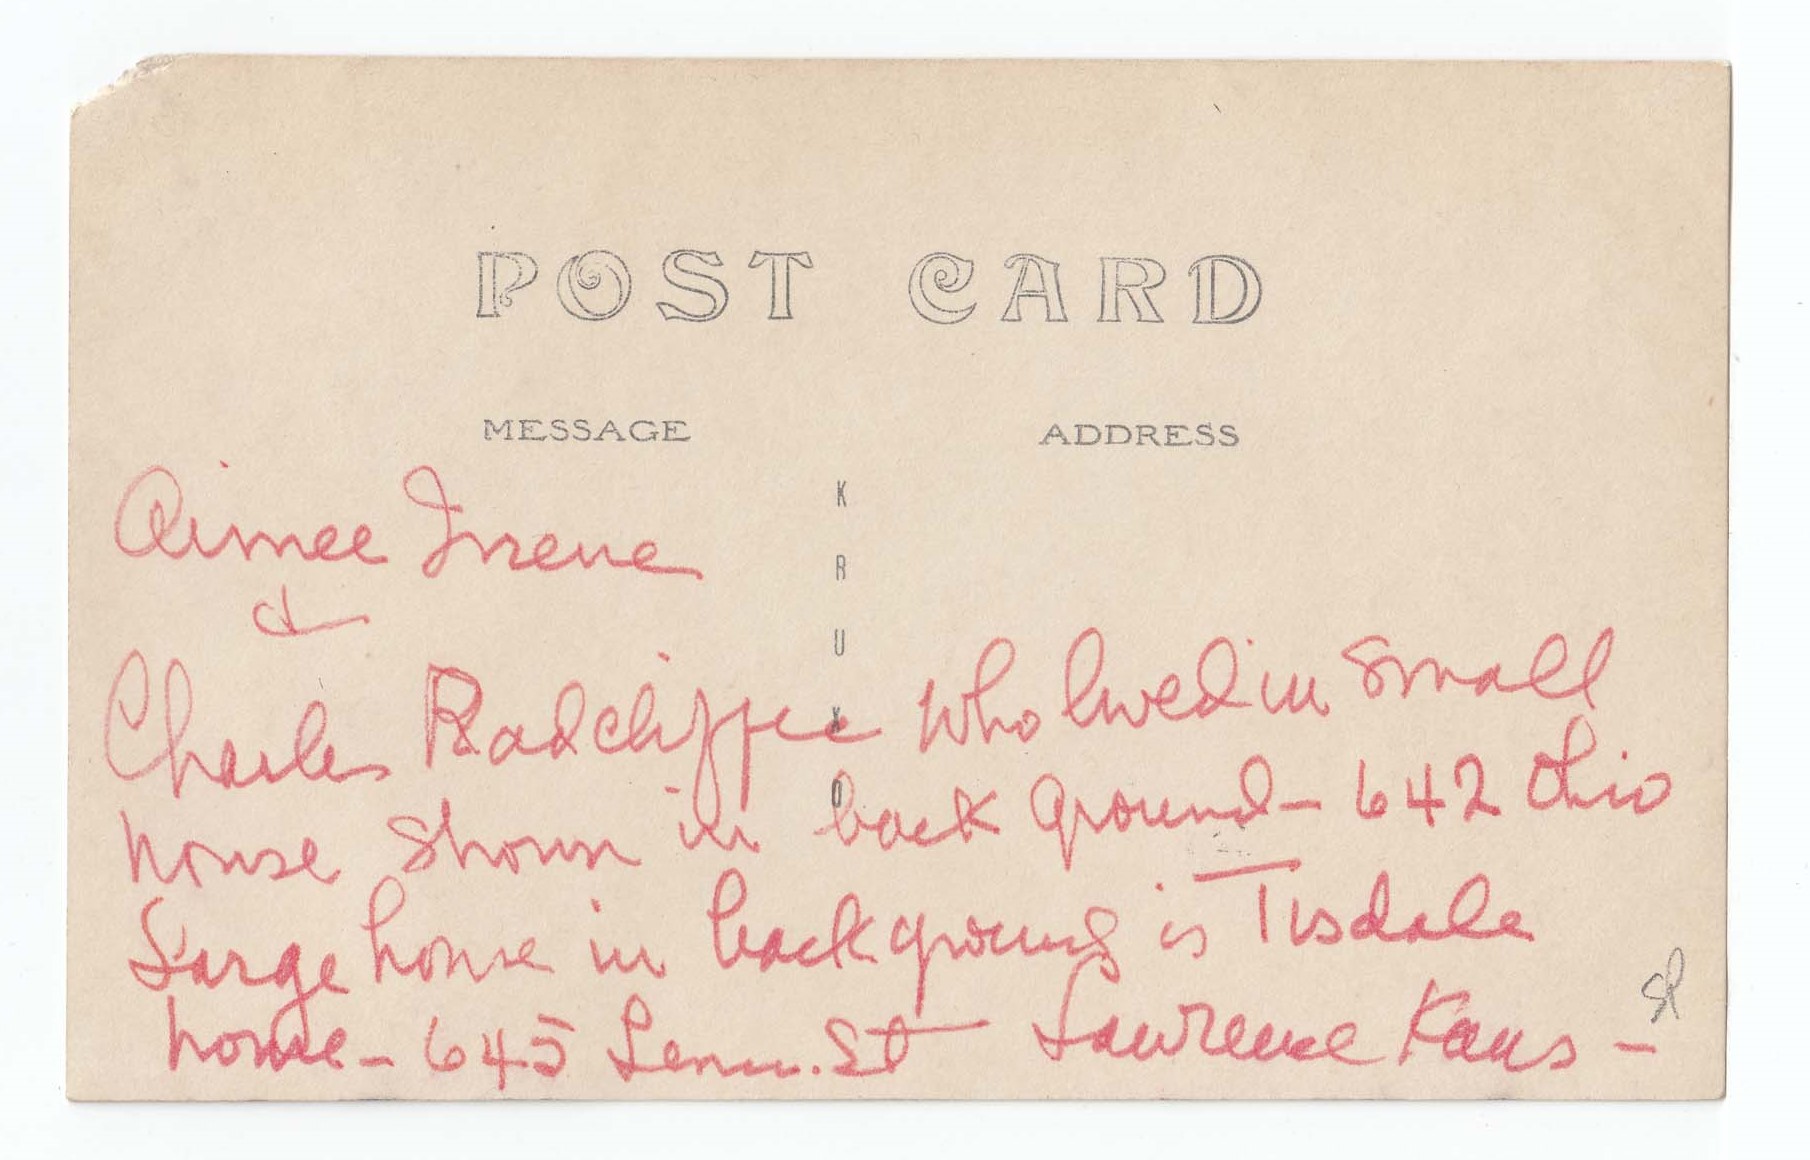 POST CARD
MESSAGE
ADDRESS
K
R
U
X
O
Aimee Irene
&
Charles Radcliffee who lived in small
house shown in back ground - 642 Ohio
Large house in background is Tisdale
home - 645 Tenn. St Lawrence Kans -